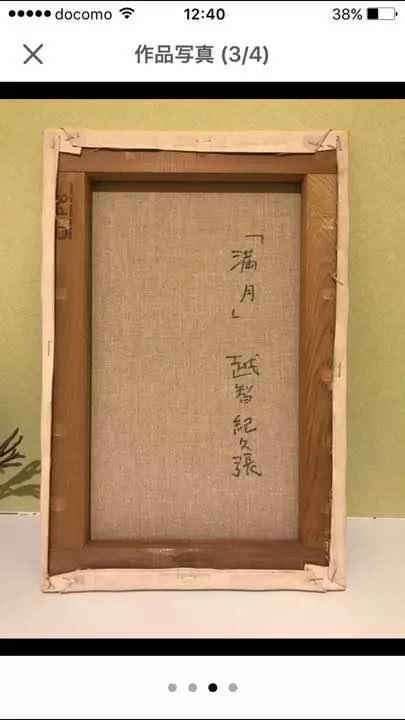 docomo 12:40 38%
作品写真 (3/4)
「満月」 越智紀久張